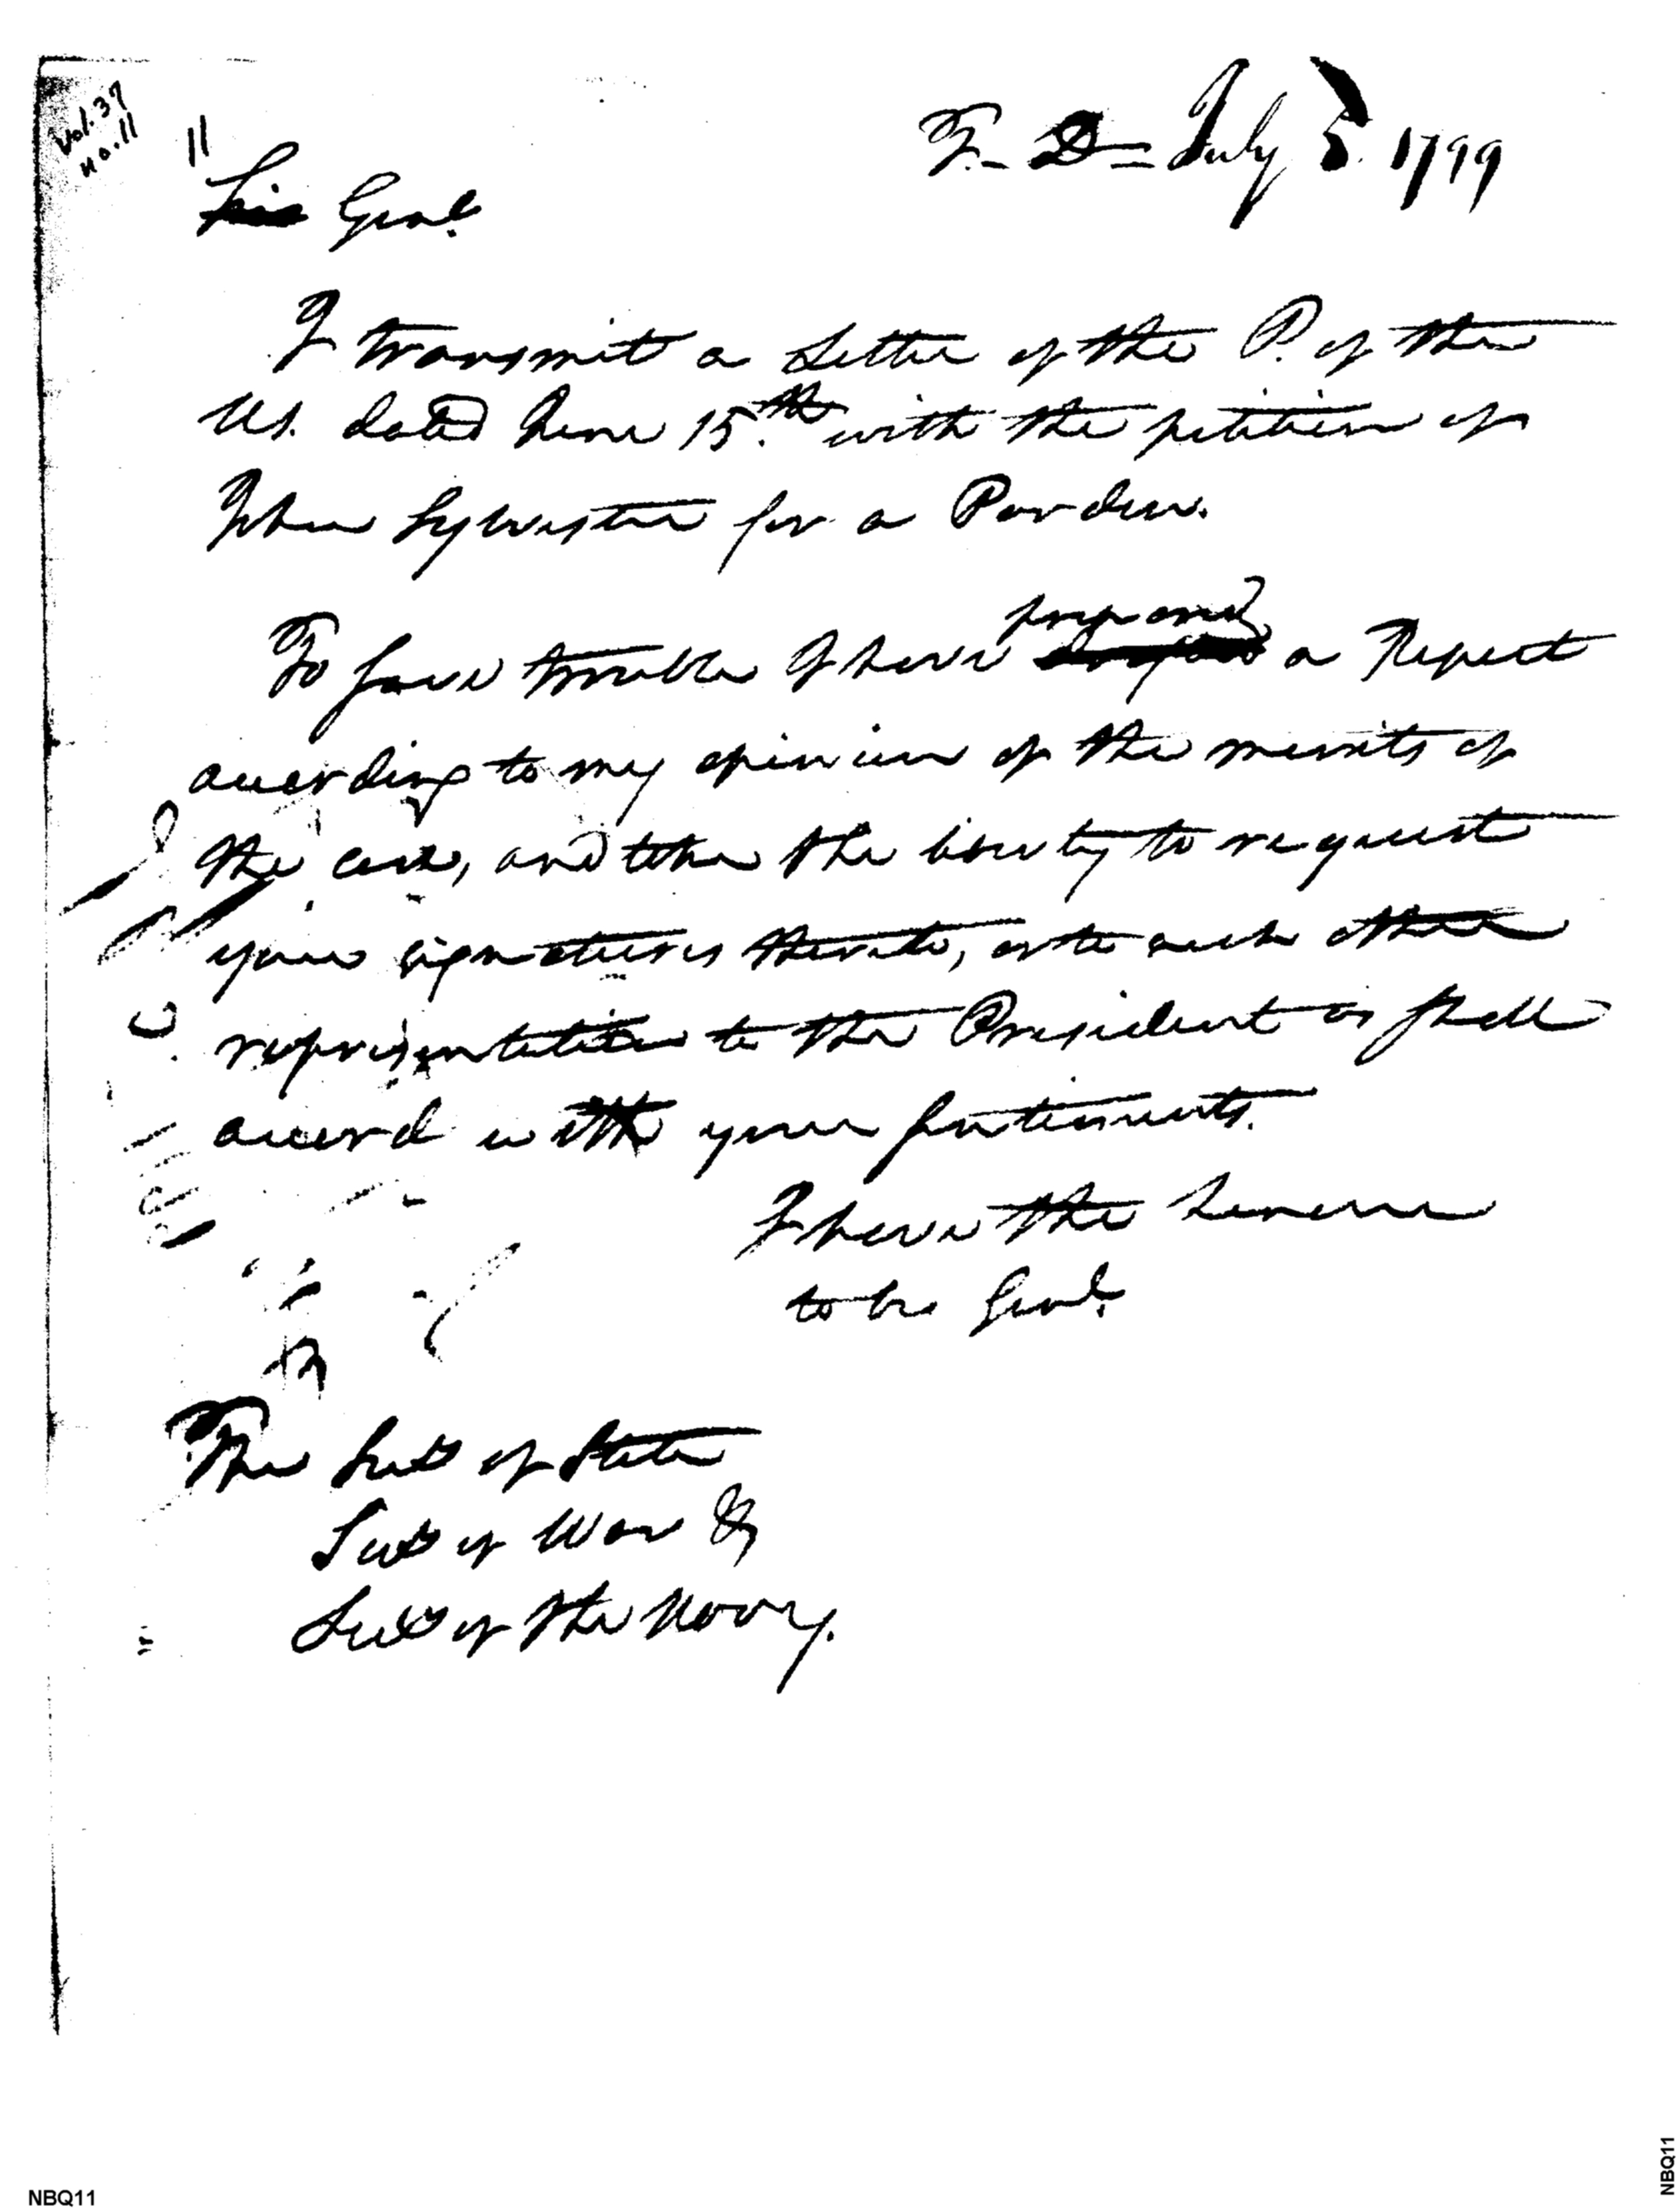 Vol. 37
no. 11
11
T. D. July 5. 1799
Gent.
I transmit a Letter of the P. of the
US. dated June 15.th with the petition of
John Sylvester for a Pardon.
prepared
To save trouble I have a Report
according to my opinion of the merits of
the case, and take the liberty to request
your signatures thereto, or to such other
representation to the President as shall
accord with your sentiments.
I have the honour
to be Gent.
The Secy of State
Secy of War &
Secy of the Navy.
NBQ11
NBQ11